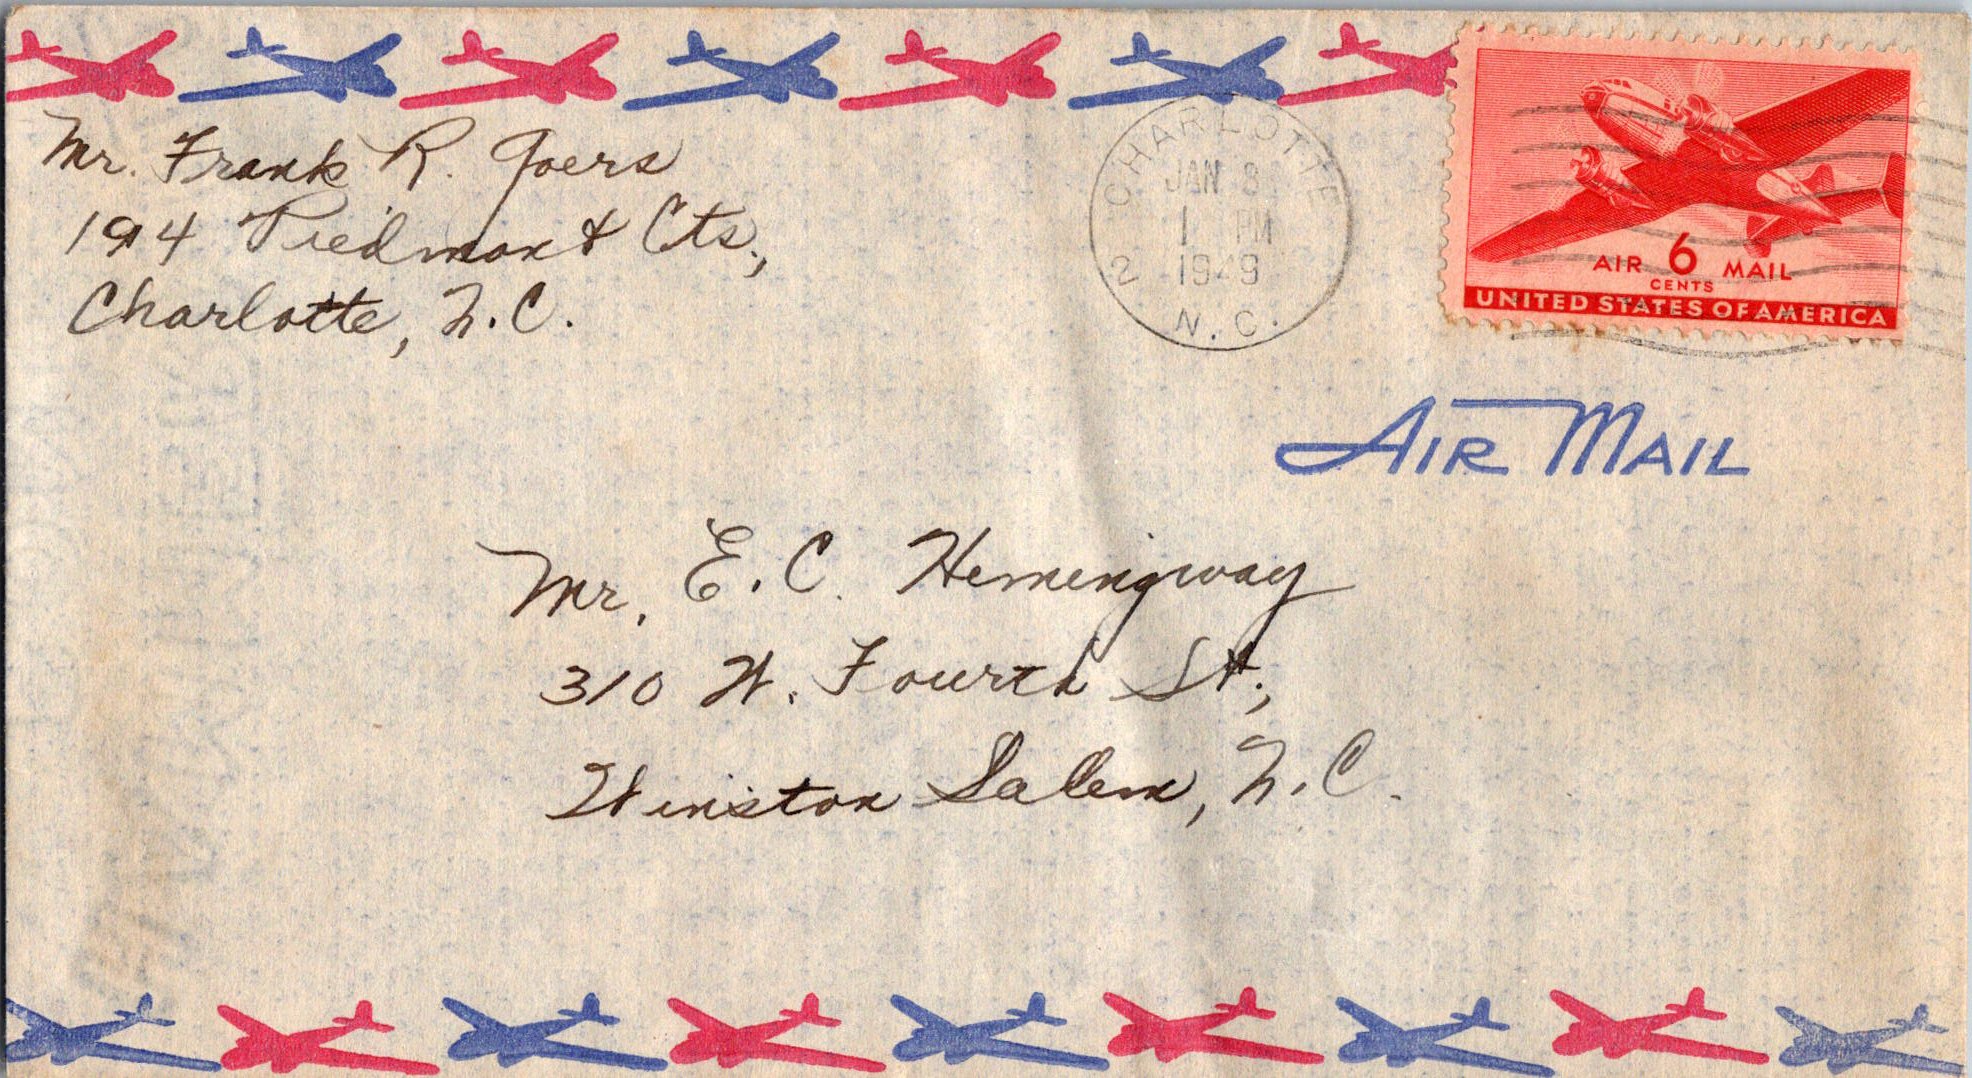 Mr. Frank R. Goers
1914 Piedmont Cts.,
Charlotte, N.C.
CHARLOTTE
JAN 8
1 PM
1949
2
N.C.
AIR 6 MAIL
CENTS
UNITED STATES OF AMERICA
AIR MAIL
Mr. E. C. Hemingway
310 W. Fourth St.,
Winston Salem, N.C.